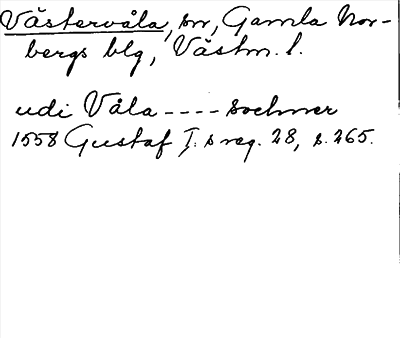 Västervåla, sn, Gamla Nor-
bergs blg, Västm. l.
udi Våla ---- sochner
1558 Gustaf I:s reg. 28, s. 265.